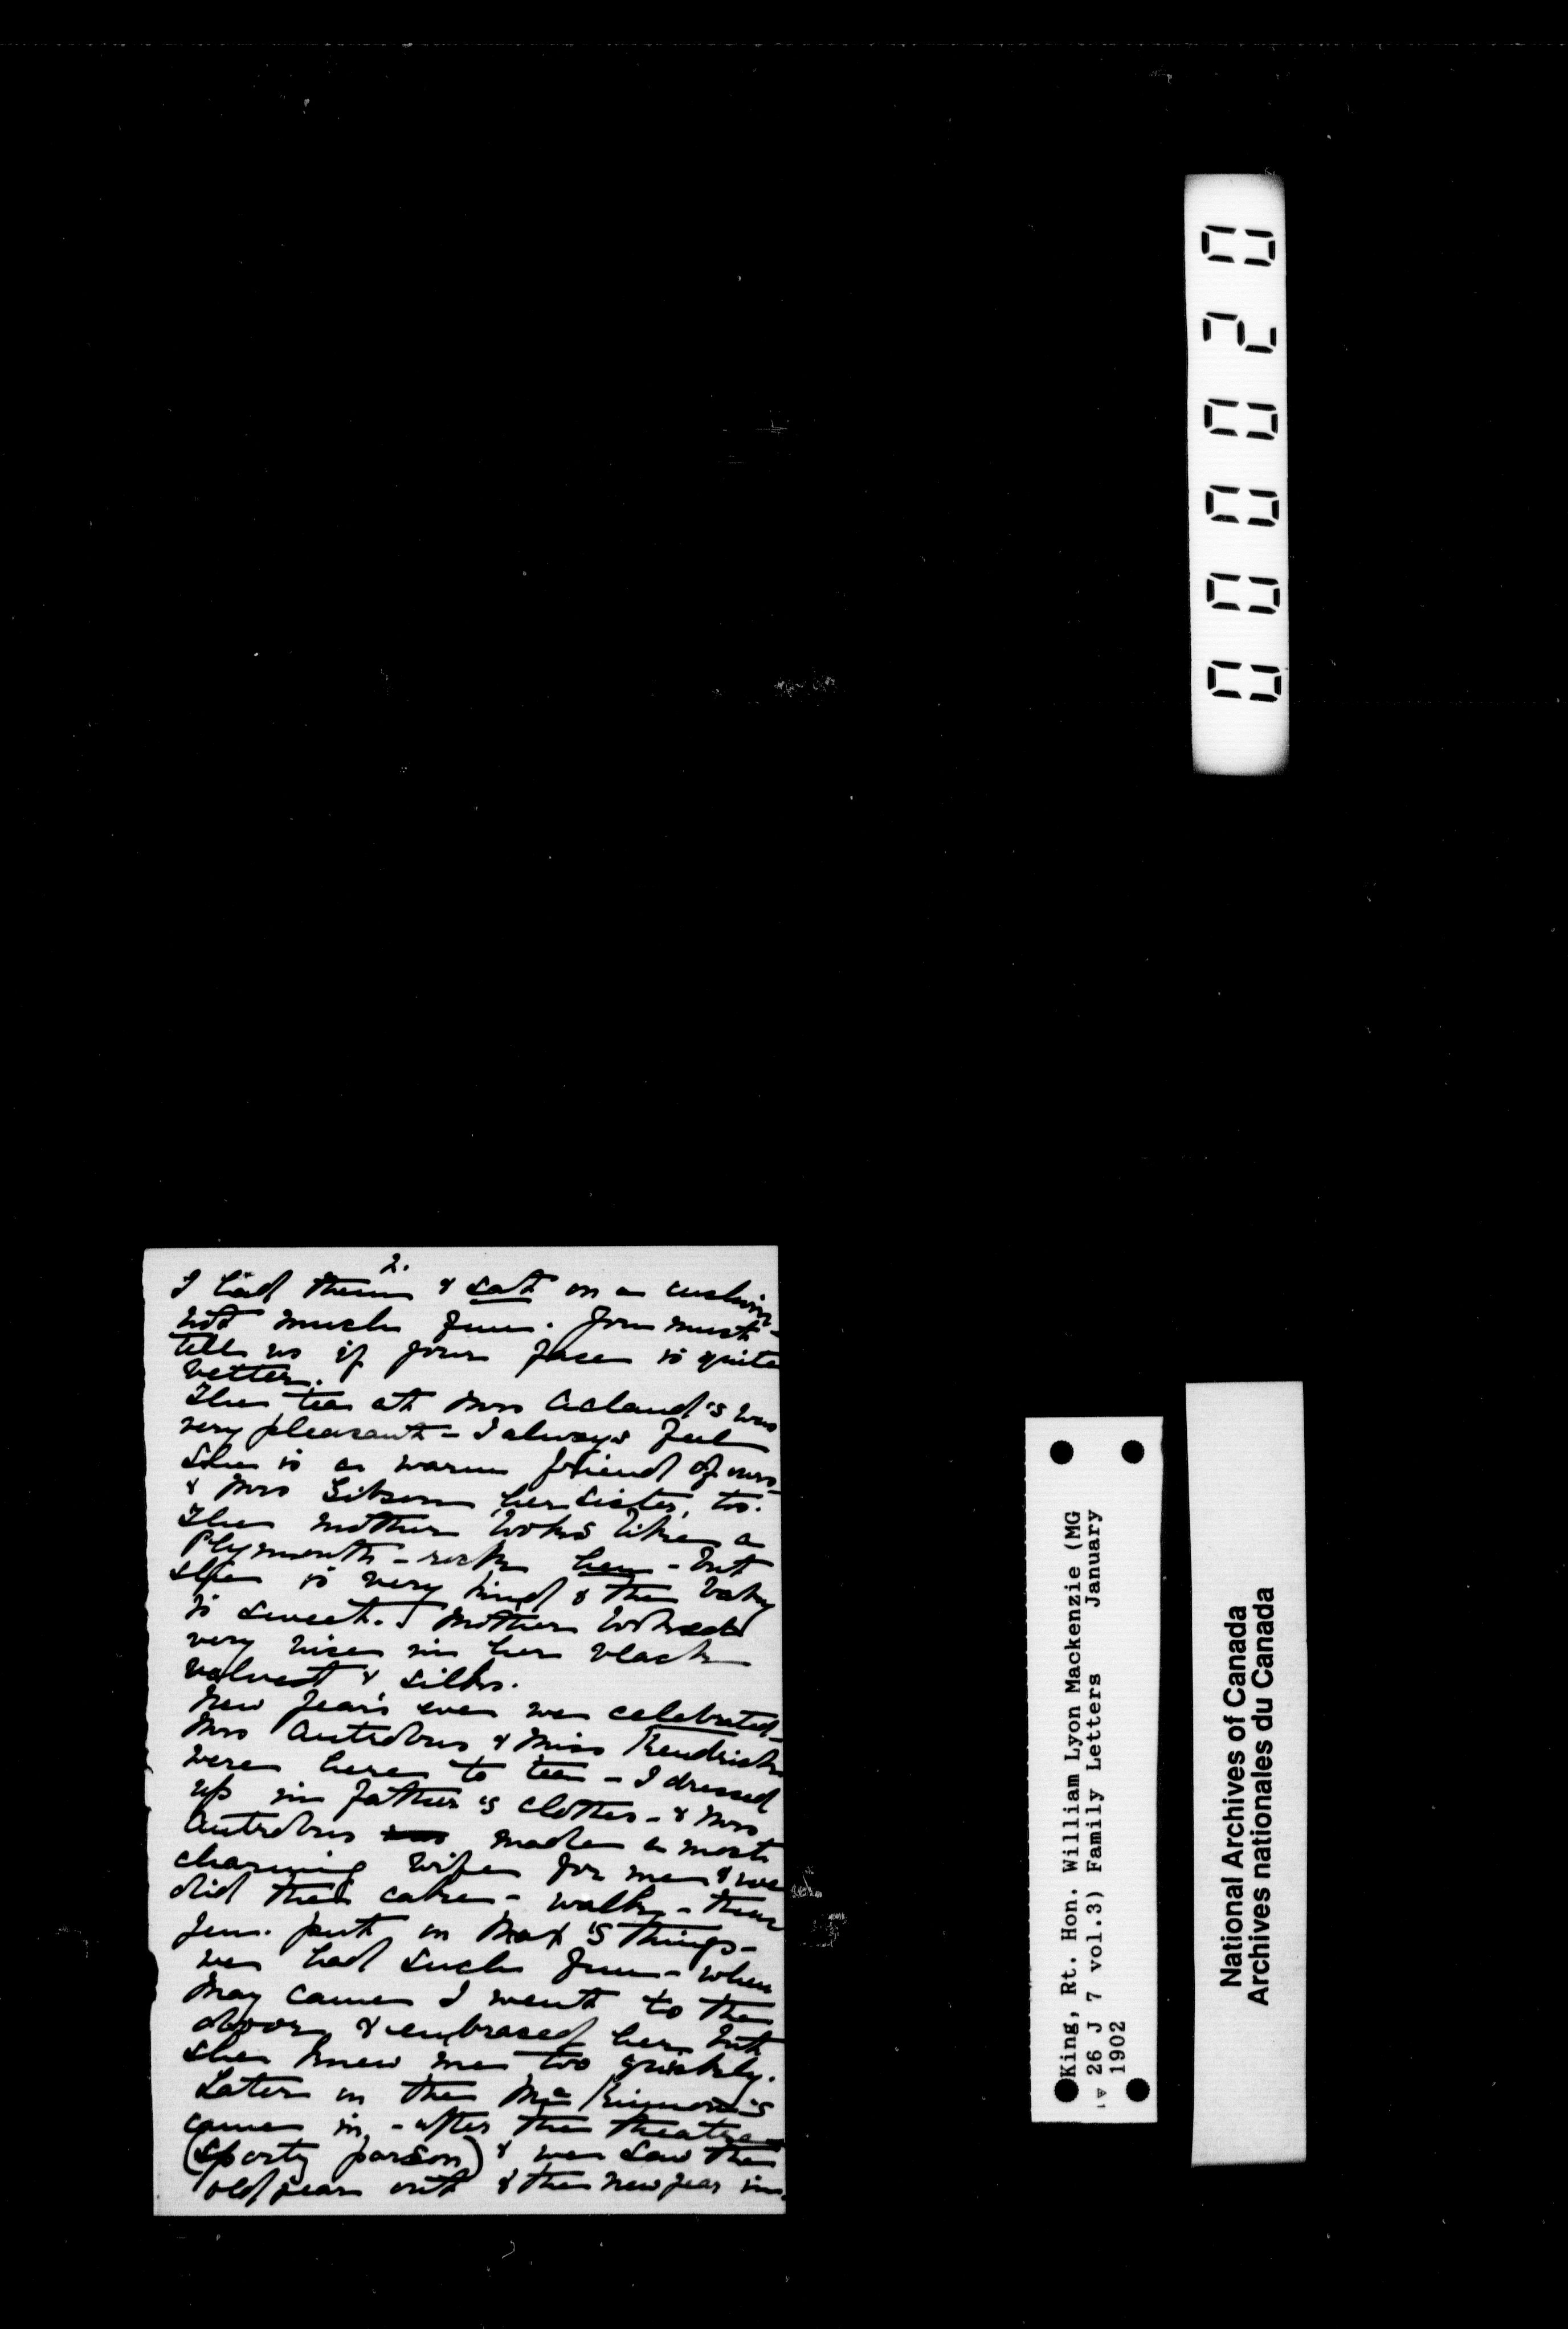 2.
I had them & sat on a cushion -
not much fun. You must
tell us if your face is quite
better.
The tea at Mrs Acland's was
very pleasant - I always feel
she is a warm friend of ours
& Mrs Gibson her sister, too.
The mother looks like a
Plymouth-rock hen - but
she is very kind & the baby
is sweet. Mother looked
very nice in her black
velvet & silks.
New Year's eve we celebrated -
Mrs Antrobus & Miss Kendrick
were here to tea - I dressed
up in father's clothes - & Mrs
Antrobus made a most
charming wife for me & we
did the cake - walk - then
Jen. put on Max's things -
we had such fun - when
May came I went to the
door & embraced her but
she knew me too quickly.
Later on the McKinnon's
came in, - after the theatre
(sporty parson) & we saw the
old year out & the new year in.
000020
King, Rt. Hon. William Lyon Mackenzie (MG
26 J 7 vol.3) Family Letters January
1902
National Archives of Canada
Archives nationales du Canada